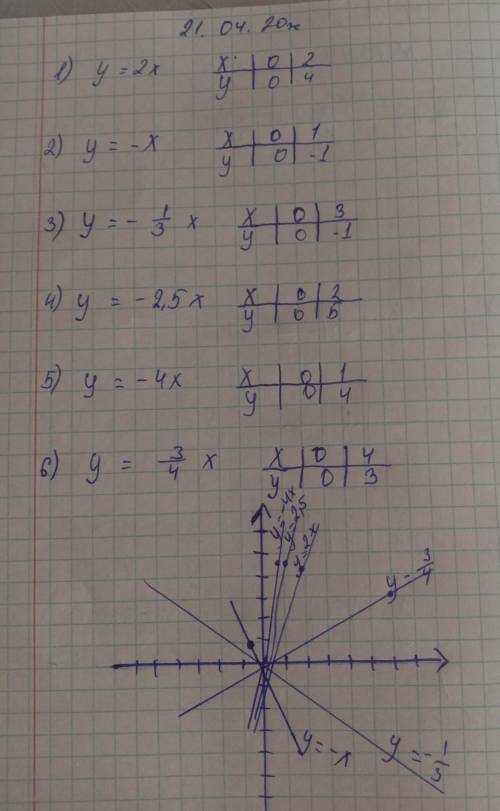 21. 04. 20
1) y = 2x x 0 2
y 0 4
2) y = -x x 0 1
y 0 -1
3) y = - 1/3 x x 0 3
y 0 -1
4) y = -2,5x x 0 2
y 0 5
5) y = -4x x 0 1
y 0 4
6) y = 3/4 x x 0 4
y 0 3
y=-4x
y=2,5
y=2x
y = 3/4
y = -x
y = -1/3